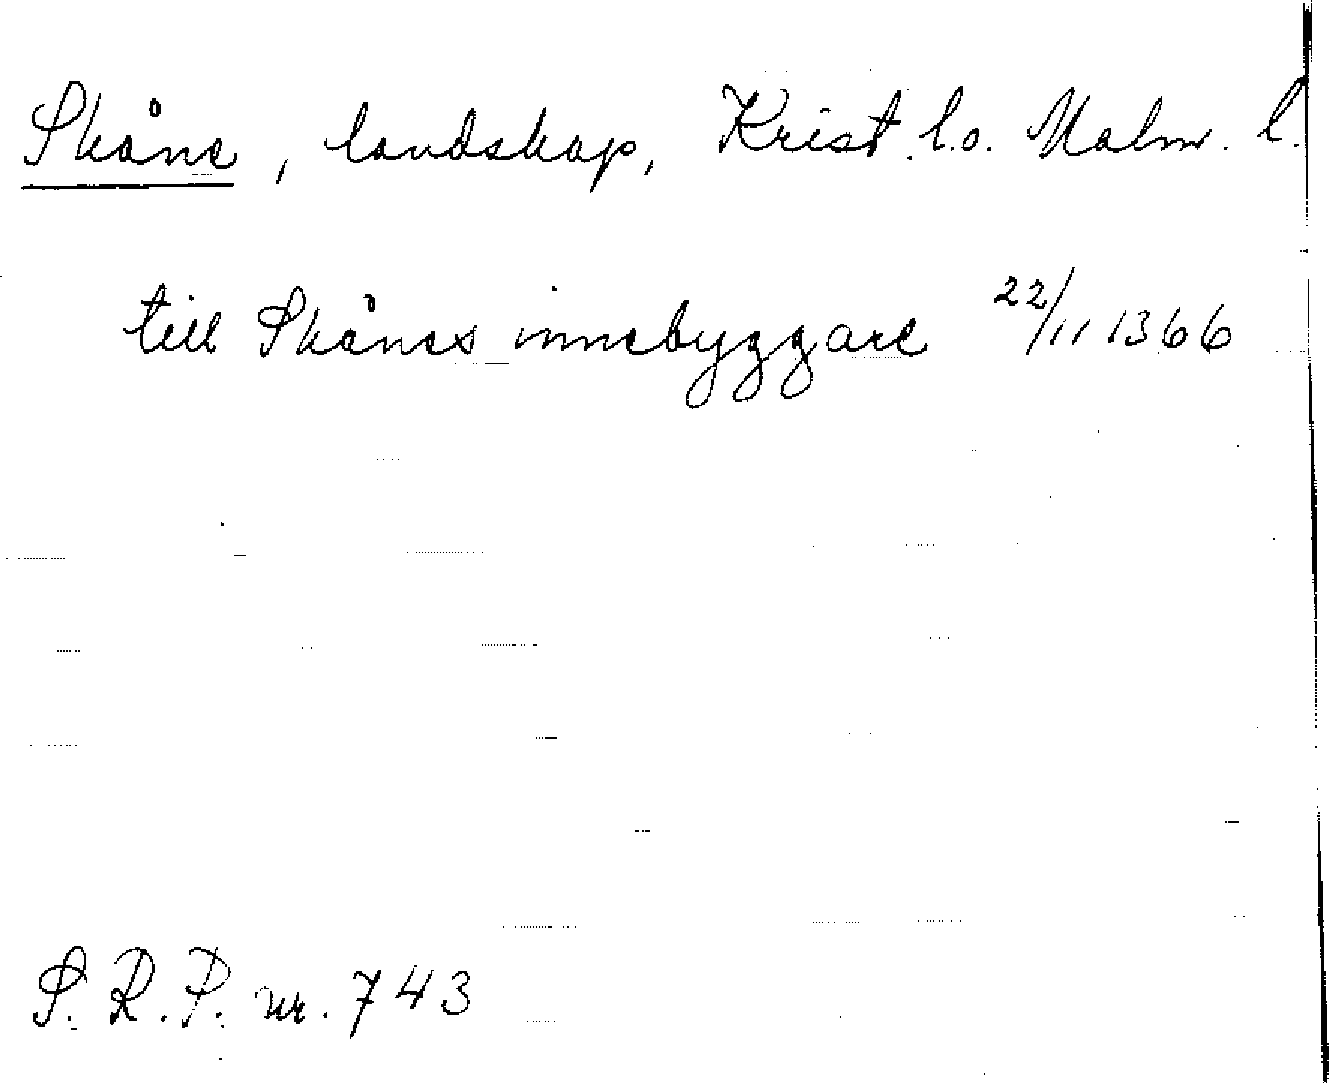 Skåne, landskap, Krist. l. o. Malm. l.
till Skånes innebyggare 22/11 1366
S. R. P. nr. 743